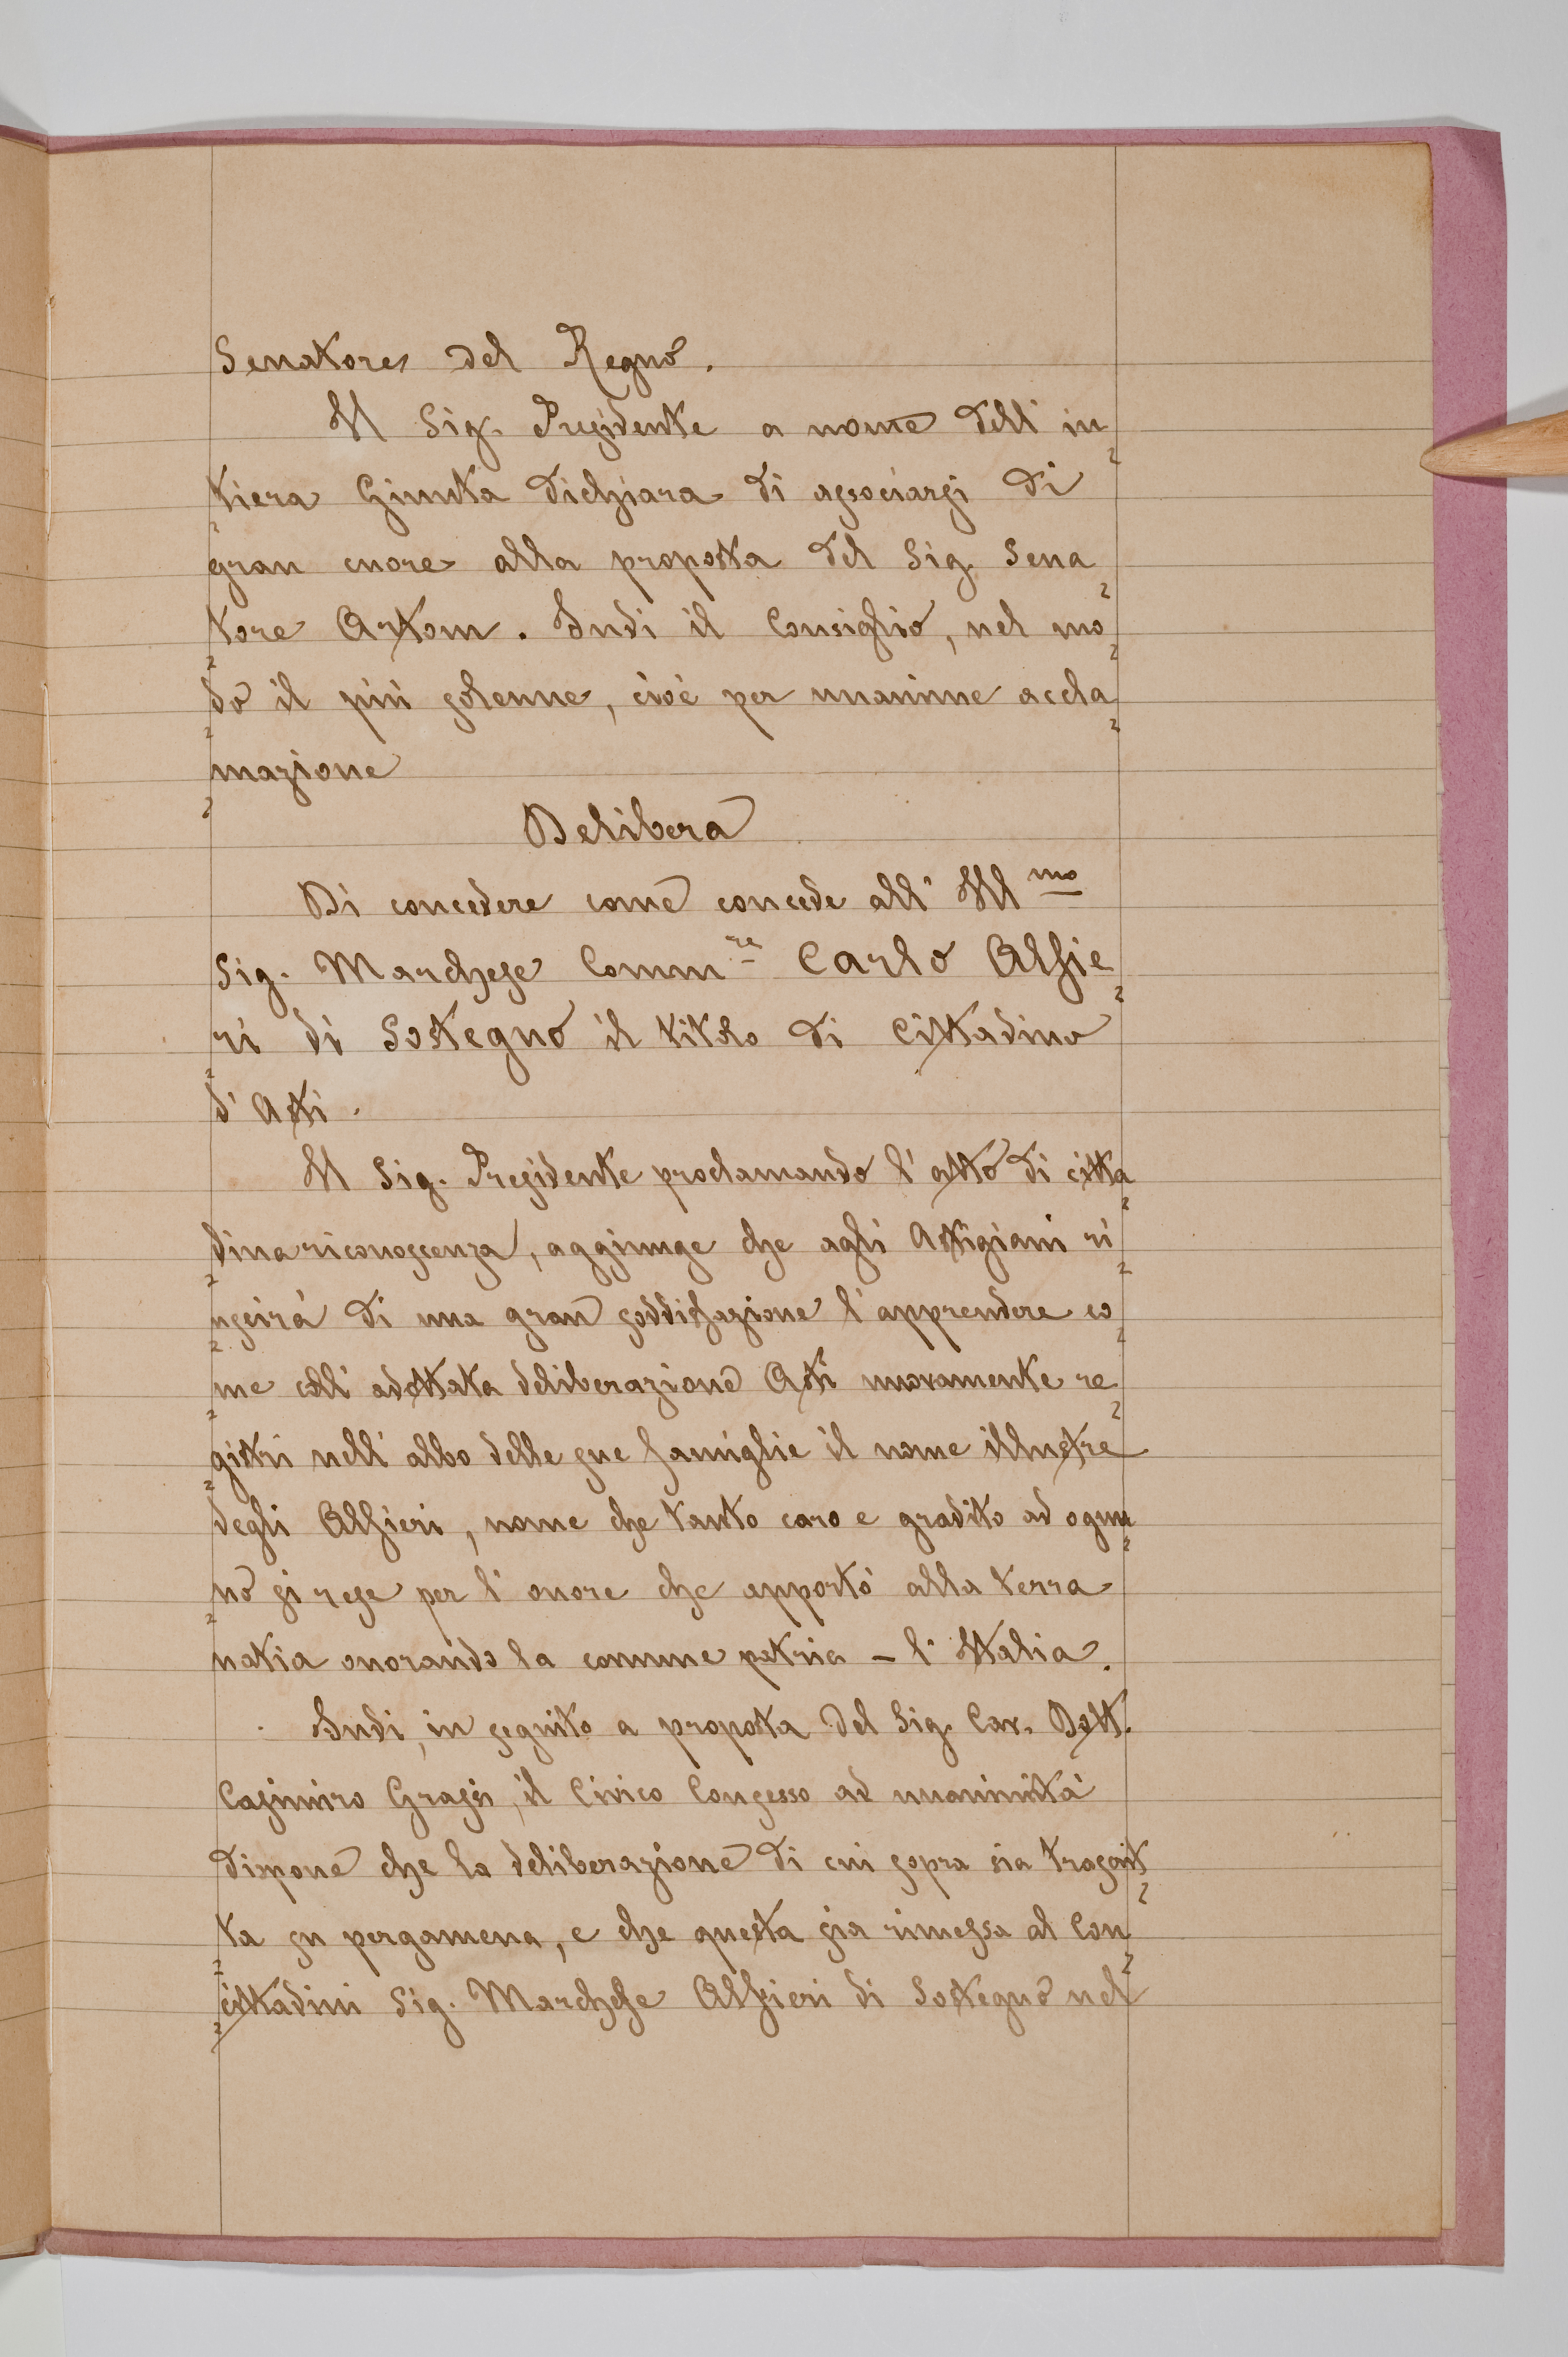 Senatore del Regno.
Il Sig. Presidente a nome dell' in
tiera Giunta dichiara di associarsi di
gran cuore alla proposta del Sig. Sena
tore Artom. Indi il Consiglio, nel mo
do il più solenne, cioè per unanime accla
mazione
Delibera
Di concedere come concede all' Ill mo
Sig. Marchese Comm re Carlo Alfie
ri di Sostegno il titolo di Cittadino
d' Asti.
Il Sig. Presidente proclamando l' atto di citta
dina riconoscenza, aggiunge che agli Astigiani ri
uscirà di una gran soddisfazione l' apprendere co
me coll' adottata deliberazione Asti nuovamente re
gistri nell' albo delle sue famiglie il nome illustre
degli Alfieri, nome che tanto caro e gradito ad ognu
no si rese per l' onore che apportò alla terra
natia onorando la comune patria - l' Italia.
Indi, in seguito a proposta del Sig. Cav. Dott.
Casimiro Grassi, il Civico Consesso ad unanimità
dispone che la deliberazione di cui sopra sia trascrit
ta su pergamena, e che questa sia rimessa al Con
cittadini Sig. Marchese Alfieri di Sostegno nel